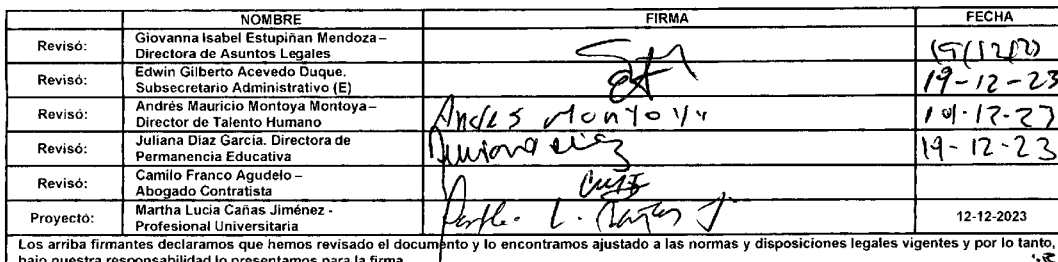 NOMBRE FIRMA FECHA
Revisó: Giovanna Isabel Estupiñan Mendoza –
Directora de Asuntos Legales
Revisó: Edwin Gilberto Acevedo Duque.
Subsecretario Administrativo (E) 19-12-23
Revisó: Andrés Mauricio Montoya Montoya –
Director de Talento Humano Andrés Montoya
Revisó: Juliana Díaz García. Directora de
Permanencia Educativa 19-12-23
Revisó: Camilo Franco Agudelo –
Abogado Contratista
Proyectó: Martha Lucia Cañas Jiménez -
Profesional Universitaria 12-12-2023
Los arriba firmantes declaramos que hemos revisado el documento y lo encontramos ajustado a las normas y disposiciones legales vigentes y por lo tanto,
bajo nuestra responsabilidad lo presentamos para la firma.